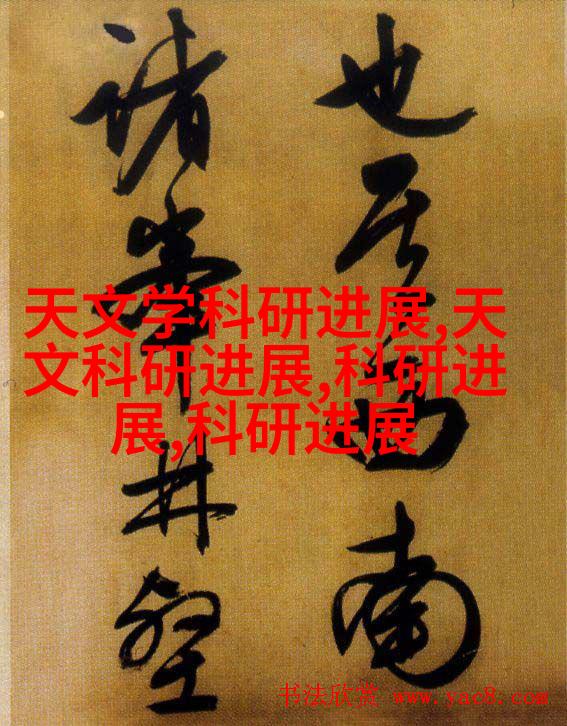 也其西南
諸峯林壑
天文学科研进展,天
文科研进展,科研进
展,科研进展
书法欣赏 www.yac8.com